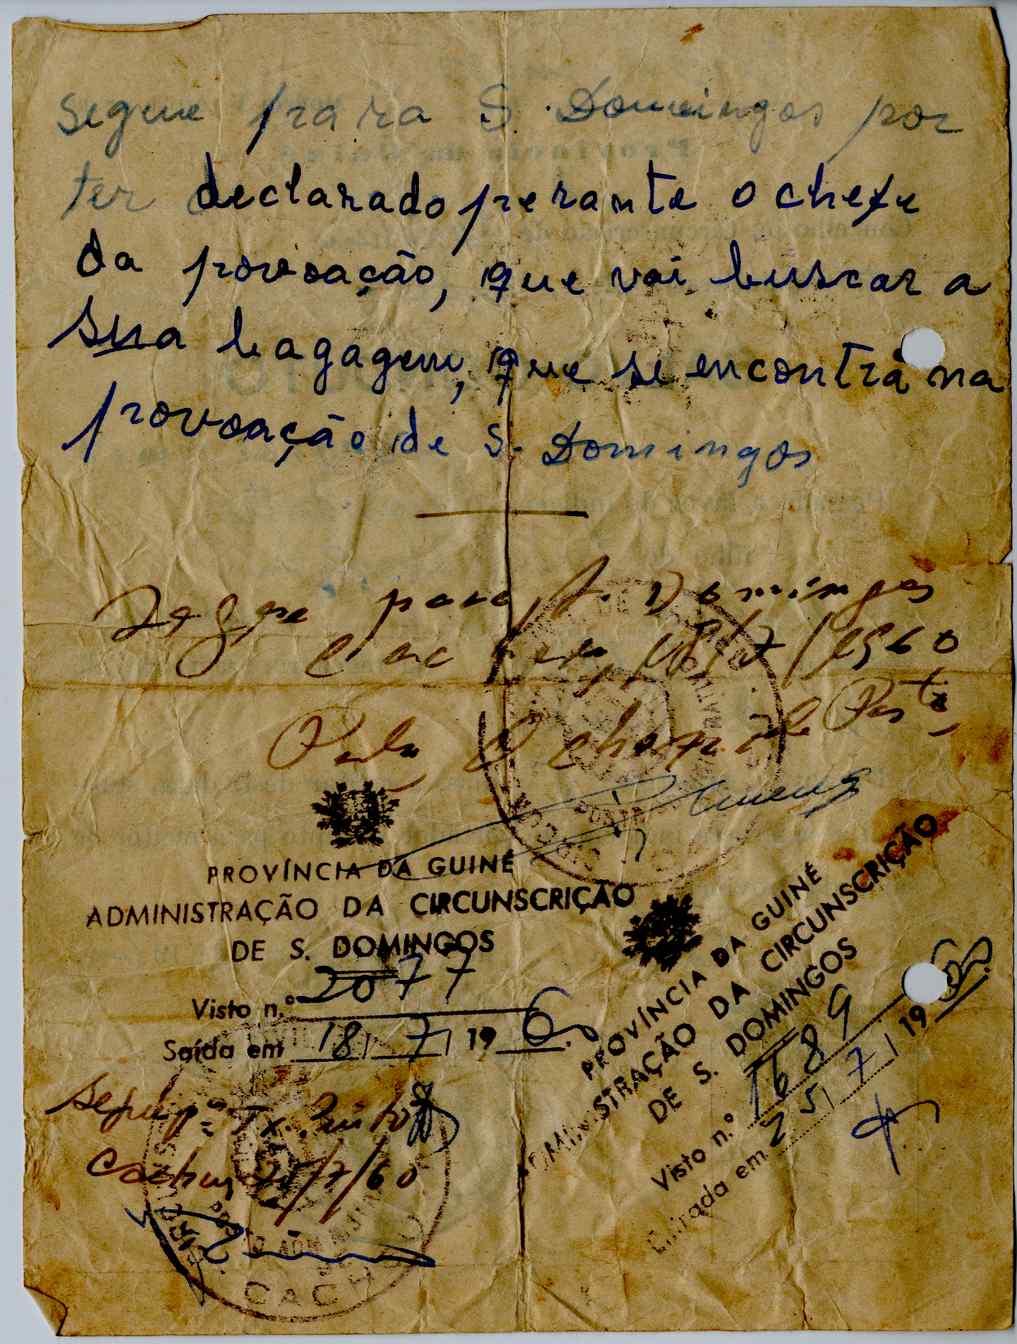 segue para S. Domingos por
ter declarado perante o chefe
da povoação, que vai buscar a
sua bagagem, que se encontra na
povoação de S. Domingos
Segue para S. Domingos
18/7/1960
Pelo Chefe de Posto
PROVÍNCIA DA GUINÉ
ADMINISTRAÇÃO DA CIRCUNSCRIÇÃO
DE S. DOMINGOS
Visto n.º 2077
Saída em 18/7/1960
PROVÍNCIA DA GUINÉ
ADMINISTRAÇÃO DA CIRCUNSCRIÇÃO
DE S. DOMINGOS
Visto n.º 1689
Entrada em 25/7/1960
Segue pª Tx. Pinto
/7/60